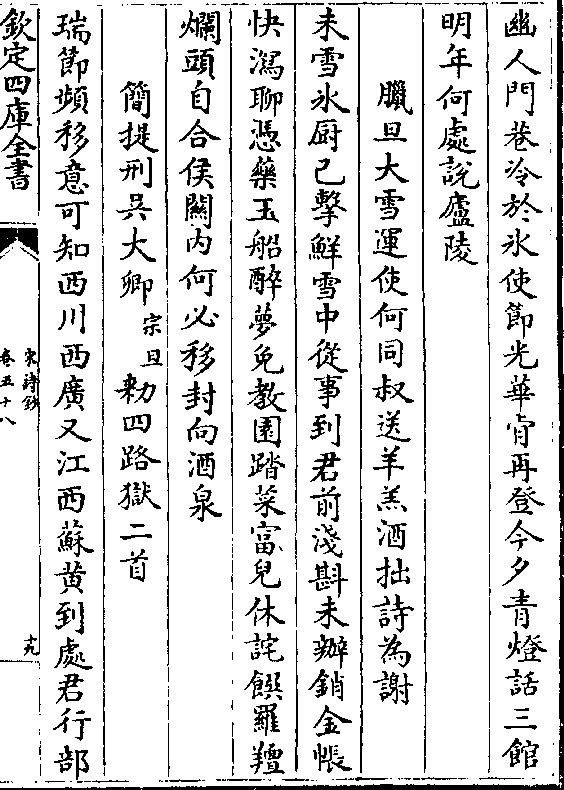 幽人門巷冷於氷使節光華肯再登今夕青燈話三館
明年何處説廬陵
臘旦大雪運使何同叔送羊羔酒拙詩為謝
未雪氷厨己擊鮮雪中從事到君前淺斟未辦銷金帳
快瀉聊憑藥玉船醉夢免教園踏菜富兒休詫饌羅羶
爛頭自合侯關内何必移封向酒泉
簡提刑呉大卿宗旦勅四路獄二首
瑞節頻移意可知西川西廣又江西蘇黄到處君行部
欽定四庫全書
宋詩鈔
卷五十八
十九